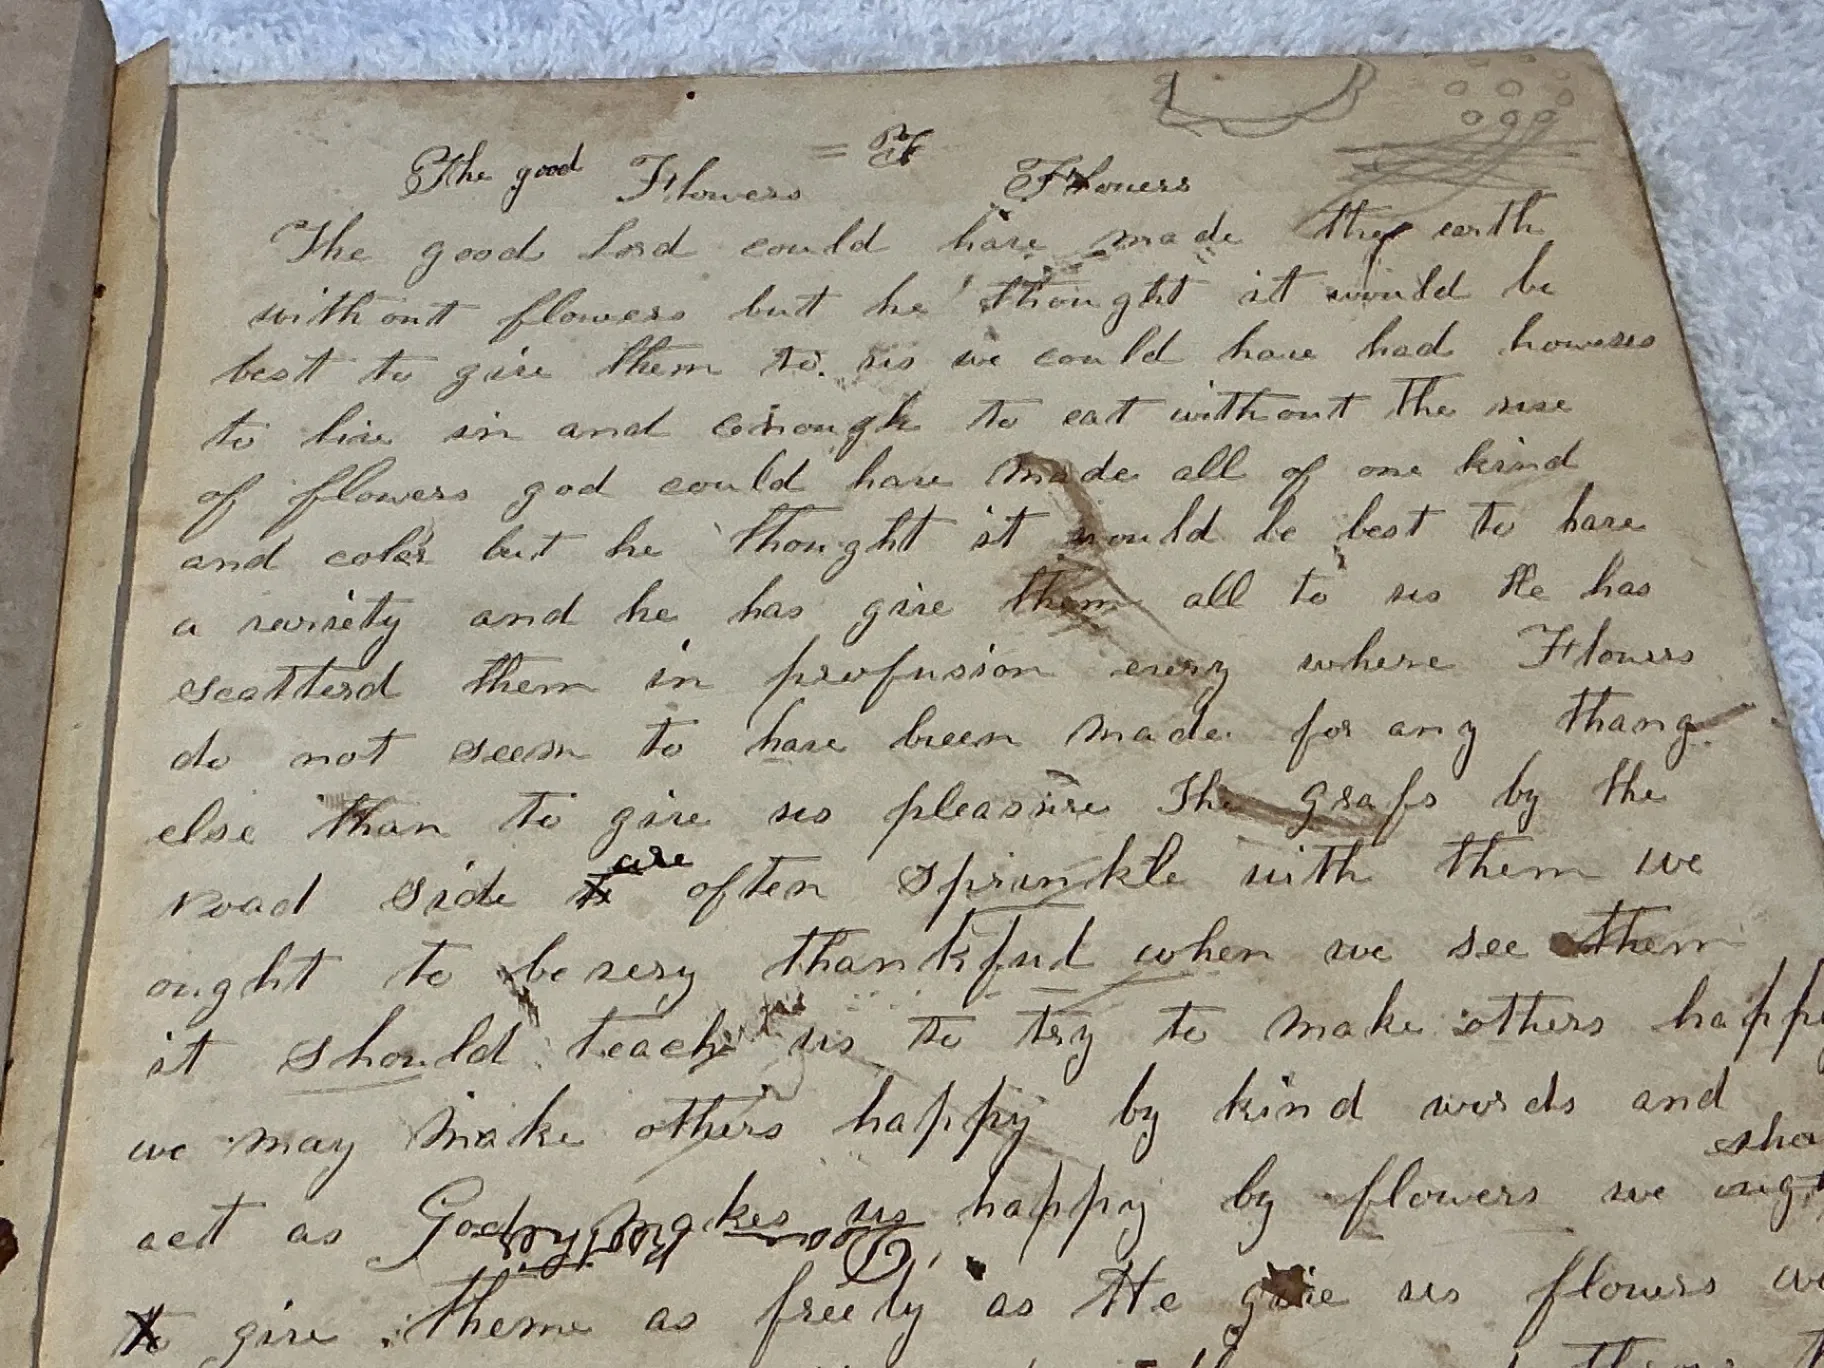 The good Flowers = Flowers
The good Lord could have made the earth
without flowers but he thought it would be
best to give them to us we could have had howeses
to live in and enough to eat without the use
of flowers god could have made all of one kind
and coler but he thought it would be best to have
a variety and he has give them all to us He has
scatterd them in profusion every where Flowers
do not seem to have breen made for any thang
else than to give us pleasure The grass by the
road side are often sprinkle with them we
ought to be very thankful when we see them
it should teach us to try to make others happy
we may make others happy by kind words and
act as God makes us happy by flowers we
to give theme as freely as He give us flowers